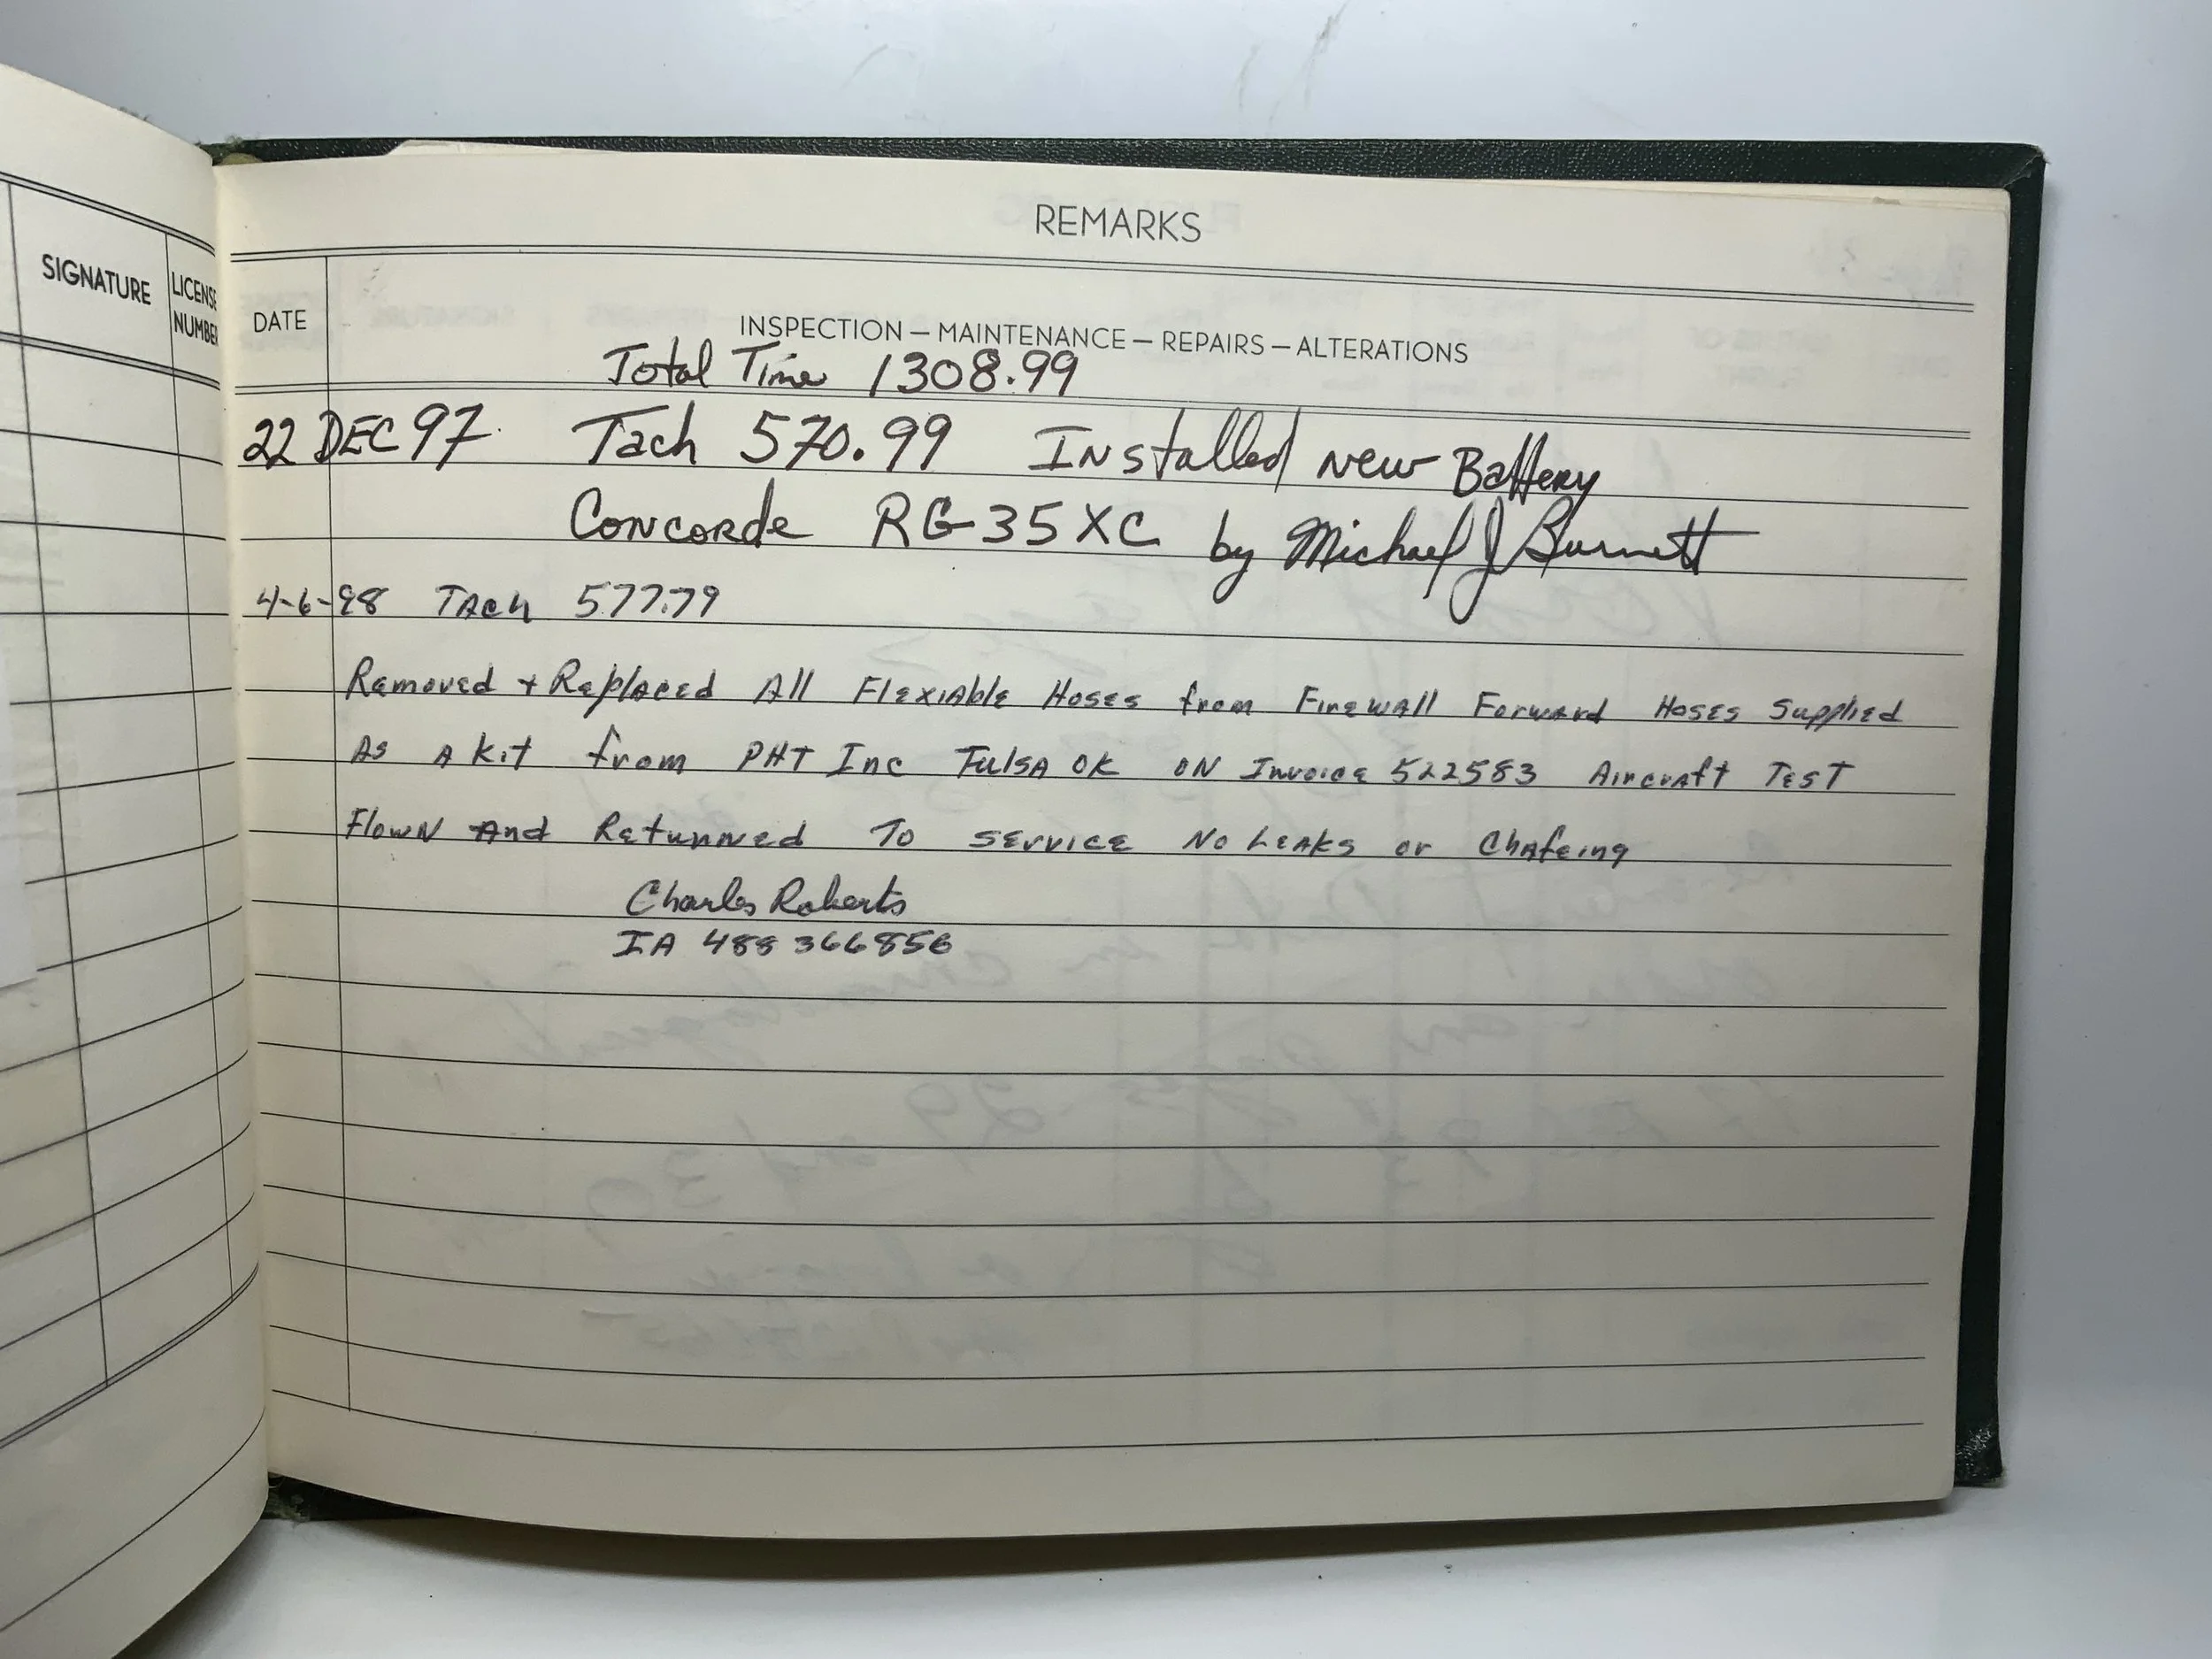 SIGNATURE
LICENSE
NUMBER
REMARKS
DATE
INSPECTION — MAINTENANCE — REPAIRS — ALTERATIONS
Total Time 1308.99
22 DEC 97 Tach 570.99 Installed new Battery
Concorde RG-35XC by Michael J Burnett
4-6-98 Tach 577.79
Removed + Replaced All Flexiable Hoses from Firewall Forward Hoses Supplied
As A Kit from PHT Inc Tulsa OK ON Invoice 522583 Aircraft Test
Flown And Retunned To Service No Leaks or Chafeing
Charles Roberts
IA 488366856